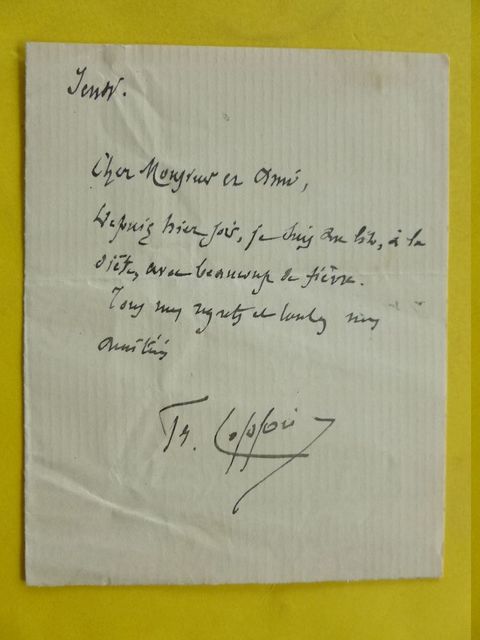 Jeudi.
Cher Monsieur et Ami,
Depuis hier soir, je suis au lit, à la
diète, avec beaucoup de fièvre.
Tous mes regrets et toutes mes
amitiés
Fr. Coppée